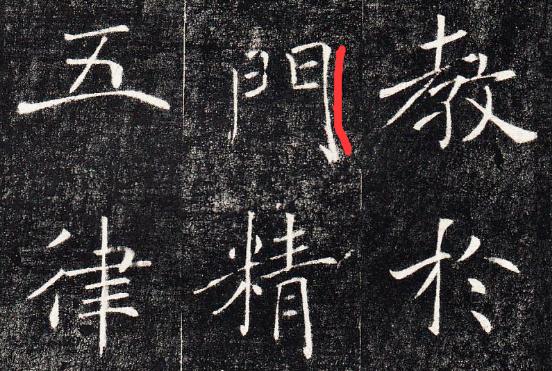 教於
門精
五律